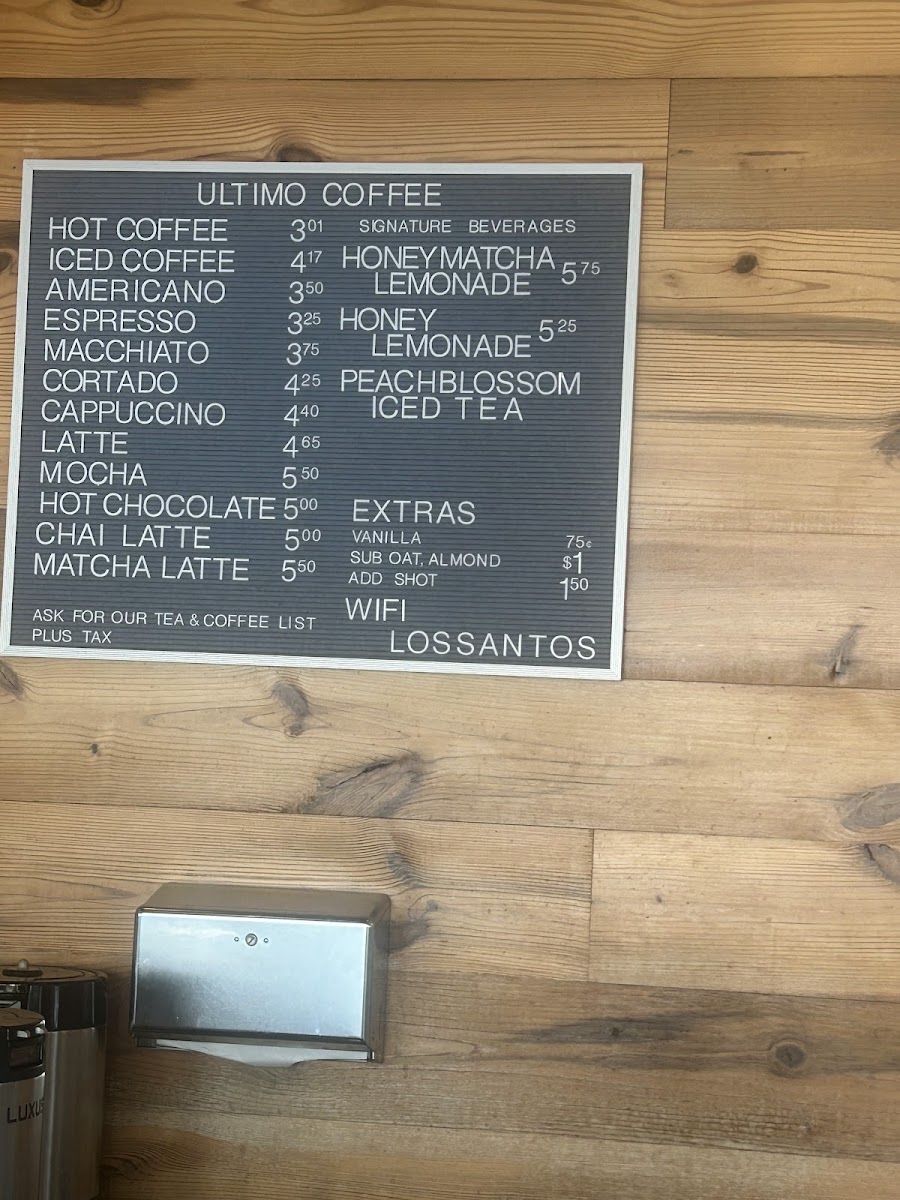 ULTIMO COFFEE
HOT COFFEE 3.01
ICED COFFEE 4.17
AMERICANO 3.50
ESPRESSO 3.25
MACCHIATO 3.75
CORTADO 4.25
CAPPUCCINO 4.40
LATTE 4.65
MOCHA 5.50
HOT CHOCOLATE 5.00
CHAI LATTE 5.00
MATCHA LATTE 5.50
ASK FOR OUR TEA & COFFEE LIST
PLUS TAX
SIGNATURE BEVERAGES
HONEY MATCHA
LEMONADE 5.75
HONEY
LEMONADE 5.25
PEACHBLOSSOM
ICED TEA
EXTRAS
VANILLA 75¢
SUB OAT, ALMOND $1
ADD SHOT 1.50
WIFI
LOSSANTOS